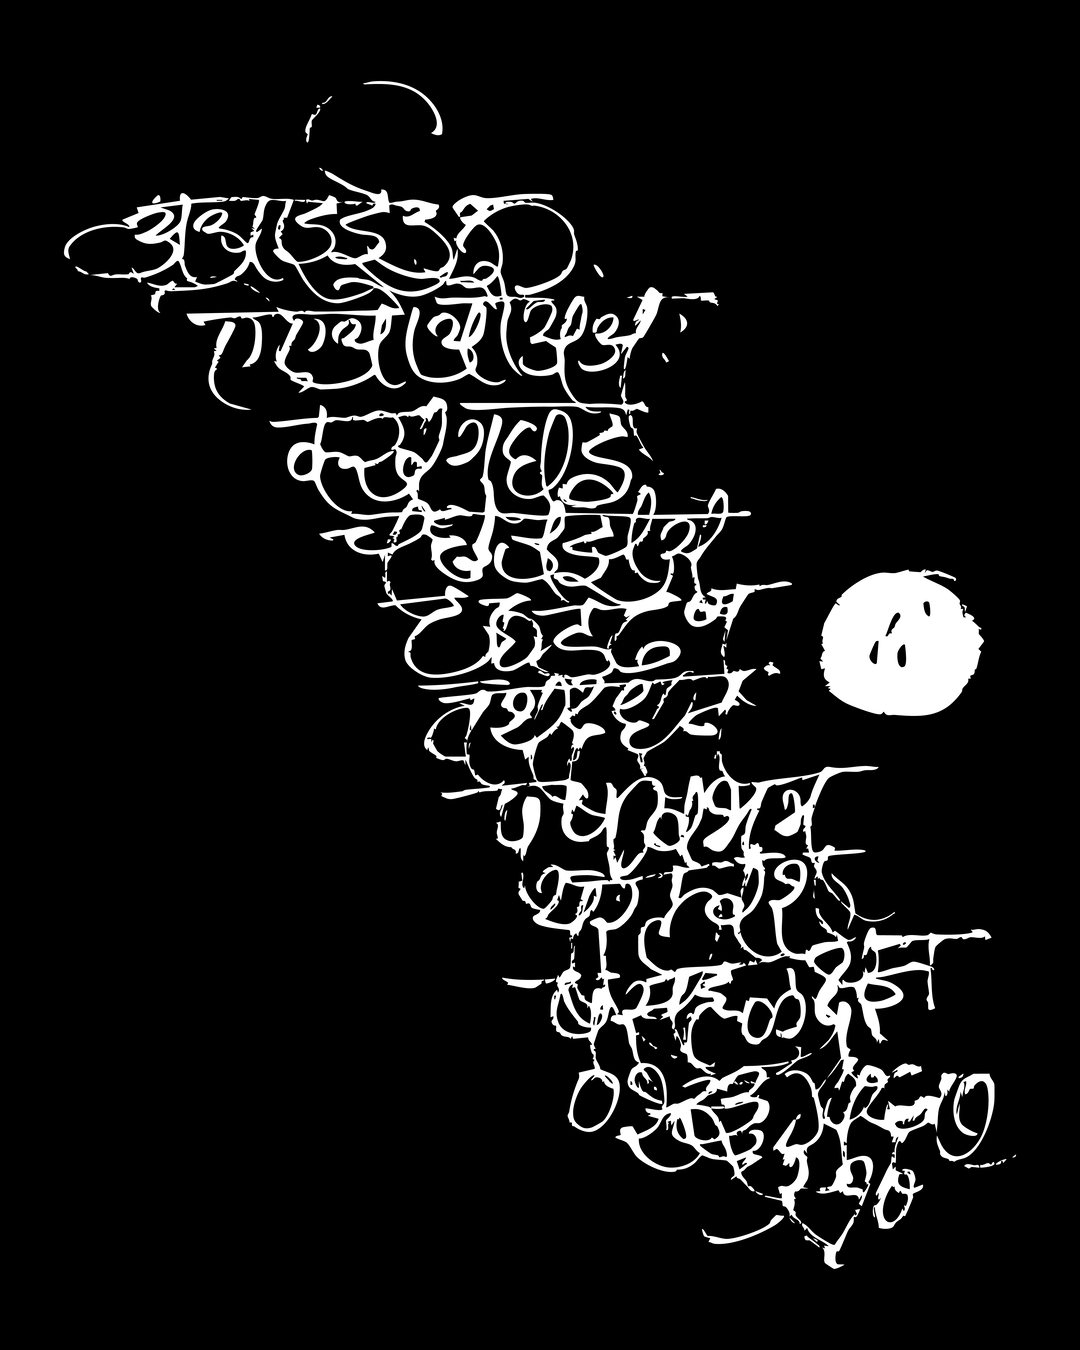 अ आ इ ई उ ऊ
ए ऐ ओ औ अं अः
क ख ग घ ङ
च छ ज झ ञ
ट ठ ड ढ ण
त थ द ध न
प फ ब भ म
य र ल व श
ष स ह ळ क्ष ज्ञ
० १ २ ३